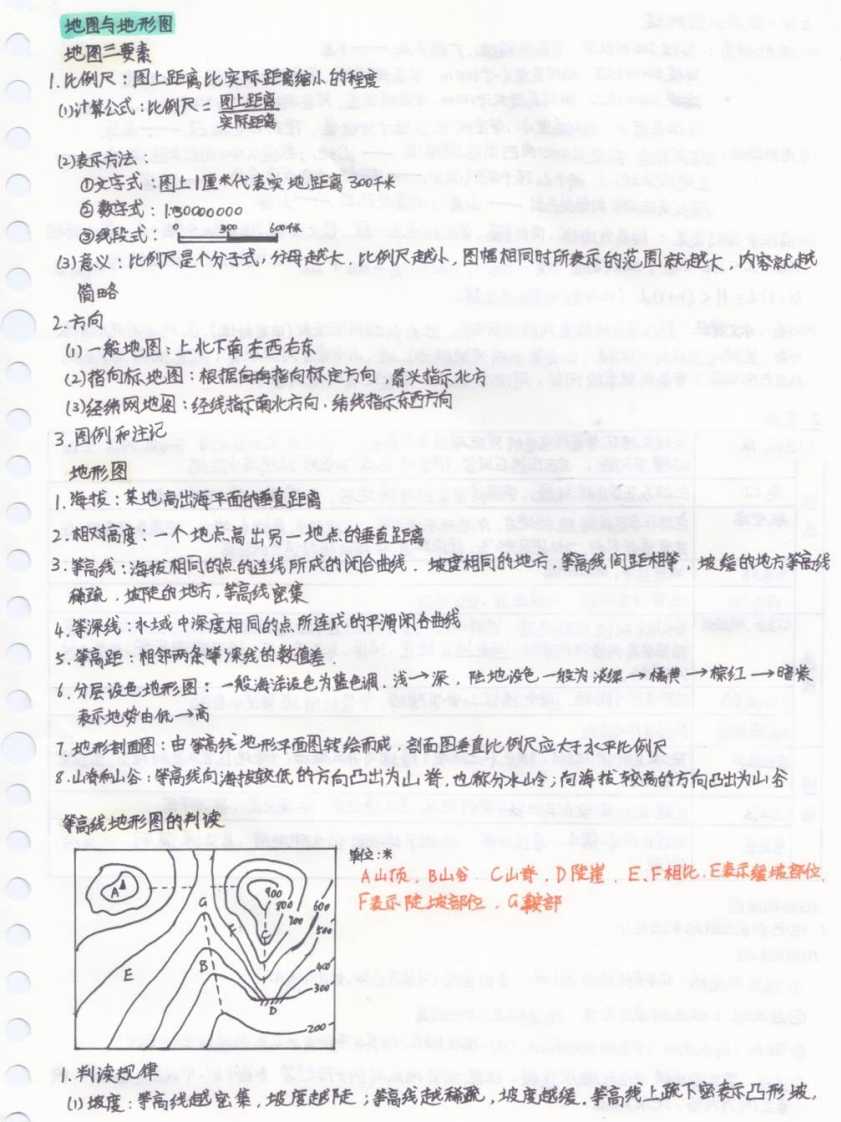 地图与地形图
地图三要素
1.比例尺：图上距离比实际距离缩小的程度
(1)计算公式：比例尺 = 图上距离
实际距离
(2)表示方法：
①文字式：图上1厘米代表实地距离300千米
②数字式：1:30000000
③线段式：0 300 600千米
(3)意义：比例尺是个分子式，分母越大，比例尺越小，图幅相同时所表示的范围就越大，内容就越
简略
2.方向
(1)一般地图：上北下南左西右东
(2)指向标地图：根据指向标定方向，箭头指示北方
(3)经纬网地图：经线指示南北方向，纬线指示东西方向
3.图例和注记
地形图
1.海拔：某地高出海平面的垂直距离
2.相对高度：一个地点高出另一地点的垂直距离
3.等高线：海拔相同的点的连线所成的闭合曲线．坡度相同的地方，等高线间距相等，坡缓的地方等高线
稀疏，坡陡的地方，等高线密集
4.等深线：水域中深度相同的点所连成的平滑闭合曲线
5.等高距：相邻两条等深线的数值差．
6.分层设色地形图：一般海洋设色为蓝色调．浅→深，陆地设色一般为深绿→橘黄→棕红→暗紫
表示地势由低→高
7.地形剖面图：由等高线地形平面图转绘而成，剖面图垂直比例尺应大于水平比例尺
8.山脊和山谷：等高线向海拔较低的方向凸出为山脊，也称分水岭；向海拔较高的方向凸出为山谷
等高线地形图的判读
单位：米
A山顶，B山谷．C山脊，D陡崖．E、F相比，E表示缓坡部位，
F表示陡坡部位．G鞍部
A
G
900
800
700
600
500
F
E
B
400
300
D
200
1.判读规律
(1)坡度：等高线越密集，坡度越陡；等高线越稀疏，坡度越缓．等高线上疏下密表示凸形坡，